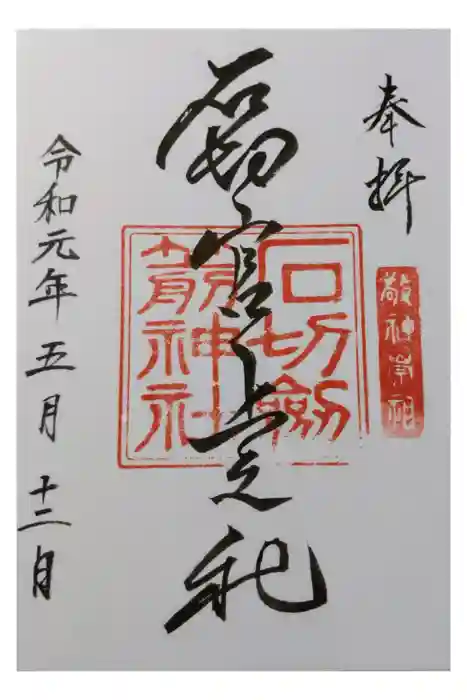 奉拝
敬神崇祖
石切宮上之社
石切劔
箭神社
令和元年五月十二日